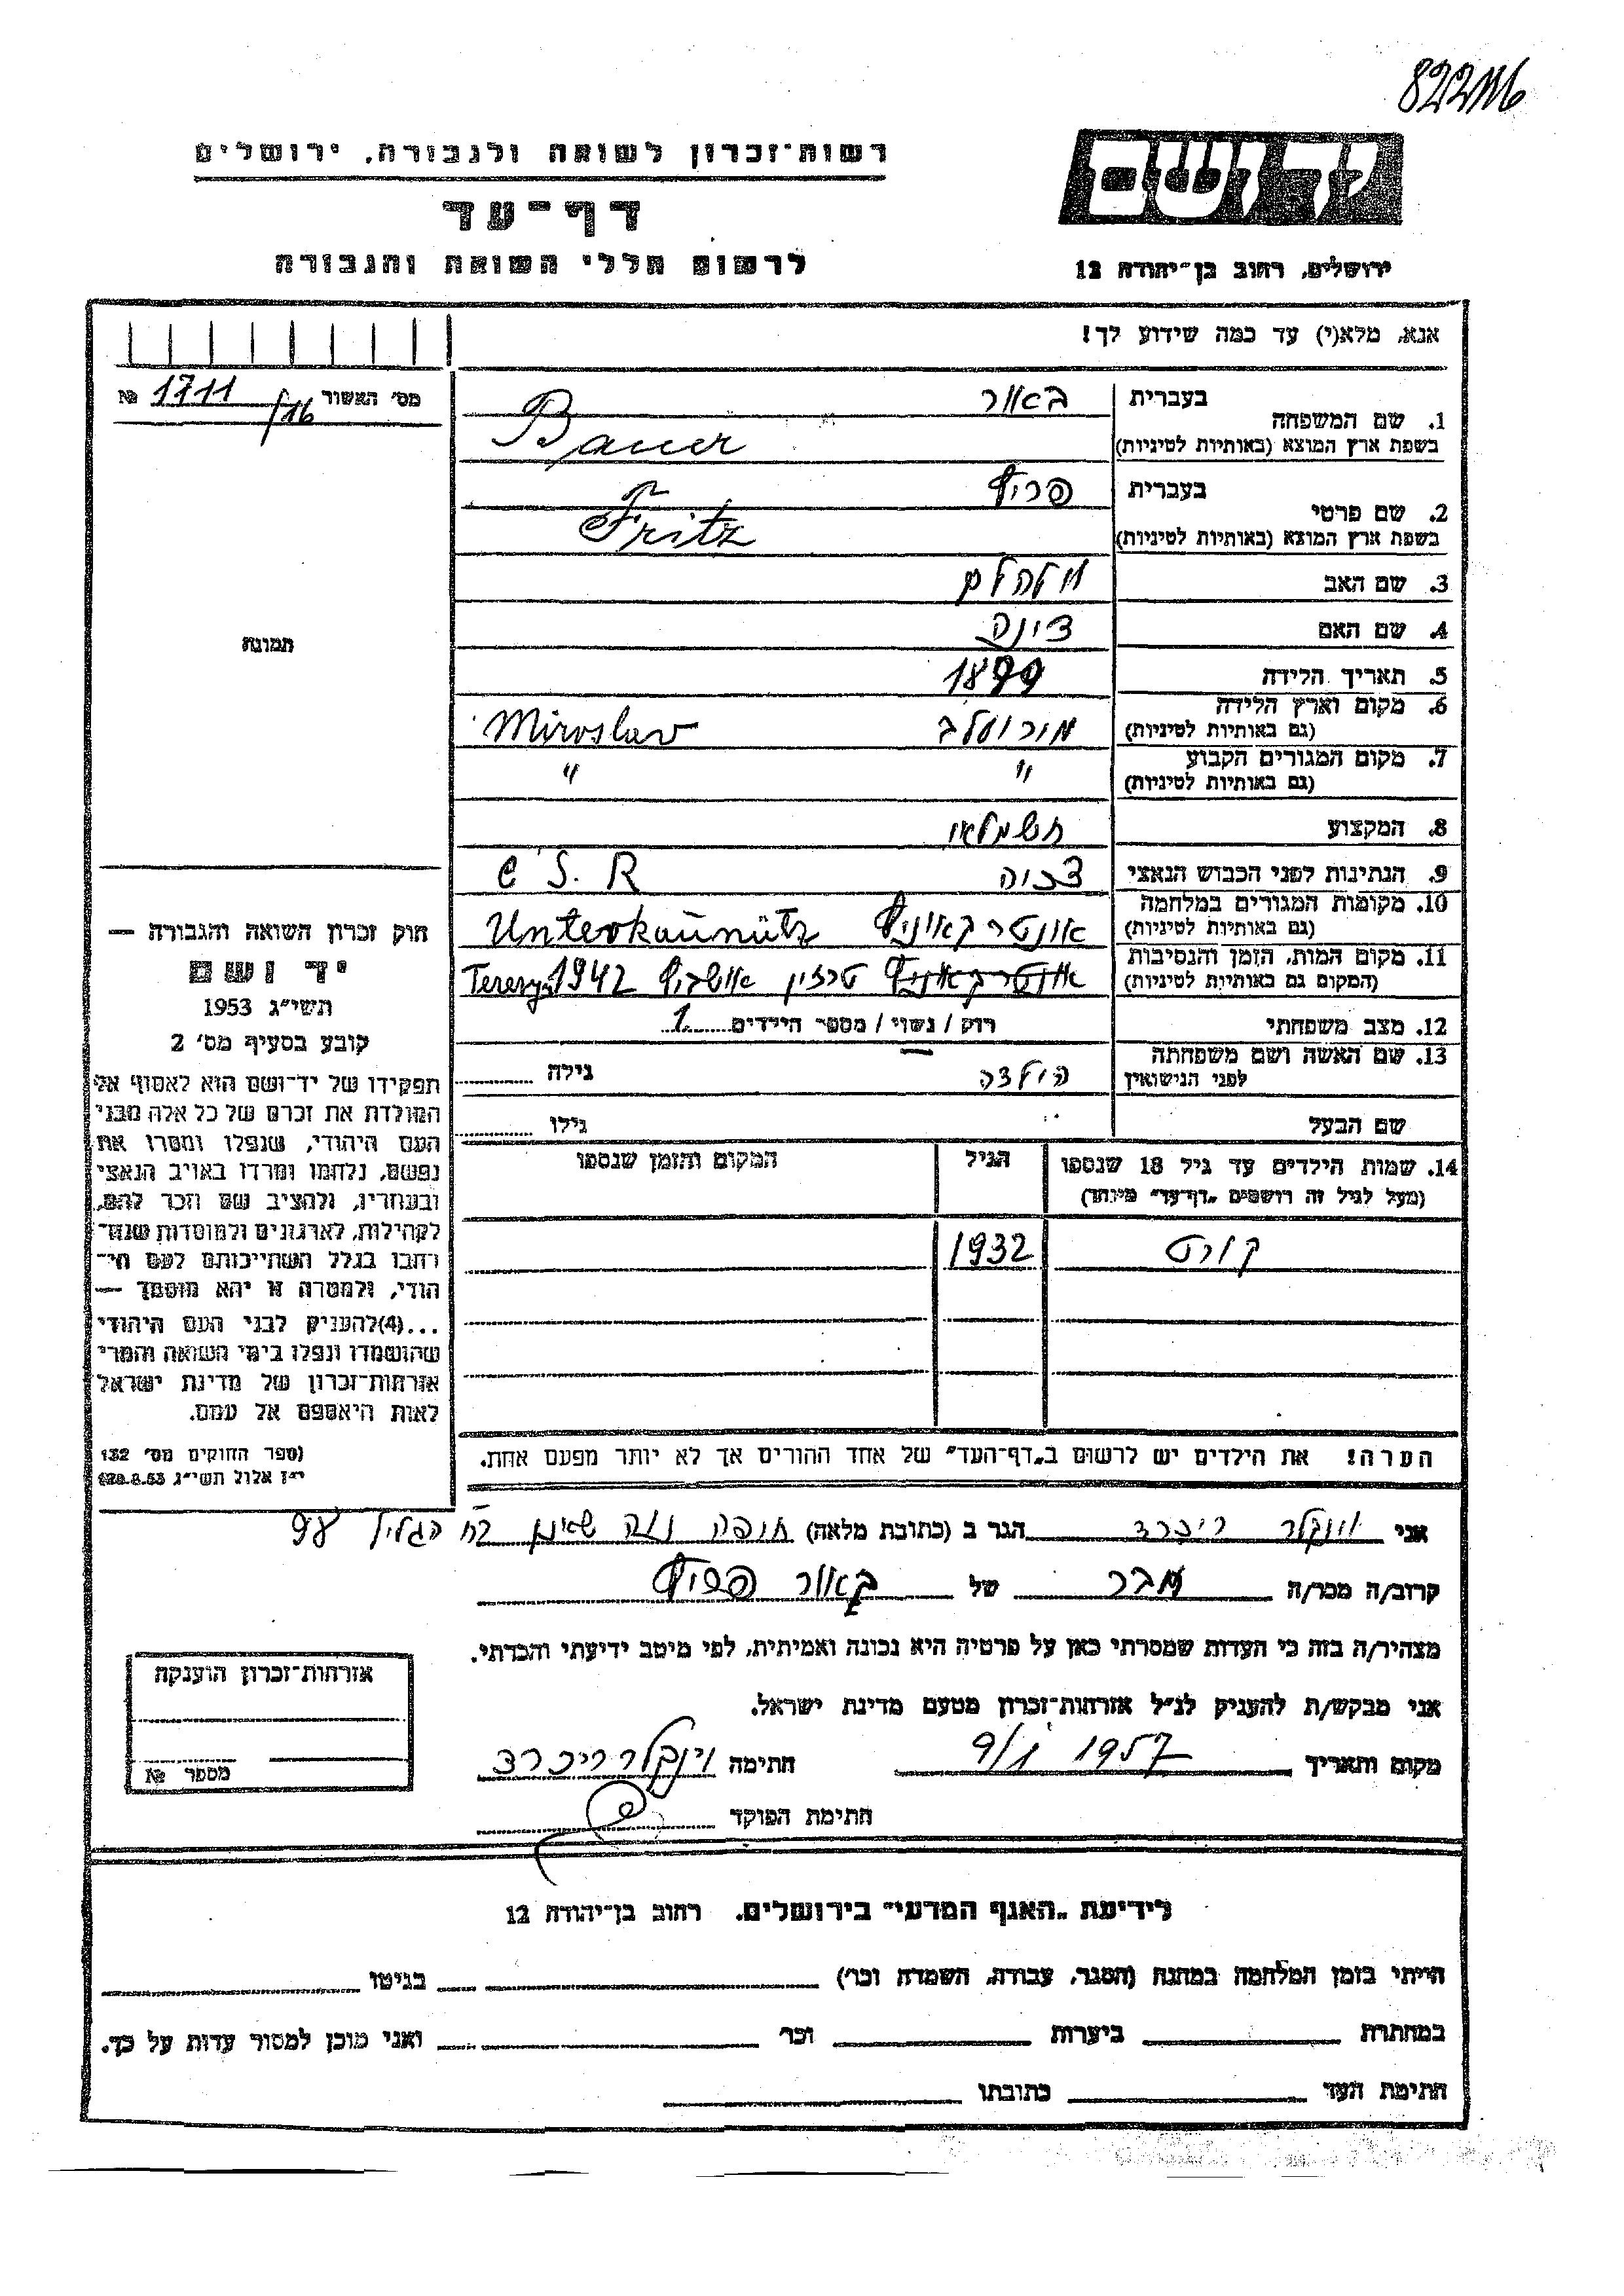 822116
רשות־זכרון לשואה ולגבורה, ירושלים
יד ושם
דף־עד
לרשום חללי השואה והגבורה
ירושלים, רחוב בן־יהודה 12
אנא, מלא(י) עד כמה שידוע לך!
מס' האשור 1711/16 №
בעברית באור
1. שם המשפחה
בשפת ארץ המוצא (באותיות לטיניות) Bauer
בעברית פריץ
2. שם פרטי
בשפת ארץ המוצא (באותיות לטיניות) Fritz
3. שם האב וילהלם
4. שם האם
5. תאריך הלידה 1899
6. מקום וארץ הלידה
(גם באותיות לטיניות) מירוסלב Miroslav
7. מקום המגורים הקבוע " "
(גם באותיות לטיניות)
8. המקצוע חשמלאי
9. הנתינות לפני הכבוש הנאצי צכיה C S. R
10. מקומות המגורים במלחמה
(גם באותיות לטיניות) אונטרקאוניץ Unterkaunütz
11. מקום המות, הזמן והנסיבות
(המקום גם באותיות לטיניות) אונטרקאוניץ טרזין אושביץ 1942
12. מצב משפחתי רווק / נשוי / מספר הילדים 1
13. שם האשה ושם משפחתה
לפני הנישואין הילדה גילה
שם הבעל גילו
14. שמות הילדים עד גיל 18 שנספו הגיל המקום והזמן שנספו
(מעל לגיל זה רושמים „דף־עד" מיוחד)
קורט 1932
הערה! את הילדים יש לרשום ב„דף־העד" של אחד ההורים אך לא יותר מפעם אחת.
תמונה
חוק זכרון השואה והגבורה —
יד ושם
תשי"ג 1953
קובע בסעיף מס' 2
תפקידו של יד־ושם הוא לאסוף אל
המולדת את זכרם של כל אלה מבני
העם היהודי, שנפלו ומסרו את
נפשם, נלחמו ומרדו באויב הנאצי
ובעוזריו, ולהציב שם וזכר להם,
לקהילות, לארגונים ולמוסדות שנח־
רבו בגלל השתייכותם לעם הי־
הודי, ולמטרה זו יהא מוסמך —
...(4)להעניק לבני העם היהודי
שהושמדו ונפלו בימי השואה והמרי
אזרחות־זכרון של מדינת ישראל
לאות היאספם אל עמם.
(ספר החוקים מס' 132
י"ז אלול תשי"ג 28.8.53)
אני וינקלר ריכרד הגר ב (כתובת מלאה) חיפה נוה שאנן רח הגליל
קרוב/ה מכר/ה מכר של באור פריץ
מצהיר/ה בזה כי העדות שמסרתי כאן על פרטיה היא נכונה ואמיתית, לפי מיטב ידיעתי והכרתי.
אני מבקש/ת להעניק לנ"ל אזרחות־זכרון מטעם מדינת ישראל.
מקום ותאריך 1957 חתימה וינקלר ריכרד
חתימת הפוקד
אזרחות־זכרון הוענקה
מספר №
לידיעת „האגף המדעי" בירושלים, רחוב בן־יהודה 12
הייתי בזמן המלחמה במחנה (הסגר, עבודה, השמדה וכו') בגיטו
במחתרת ביערות וכו' ואני מוכן למסור עדות על כך.
חתימת העד כתובתו